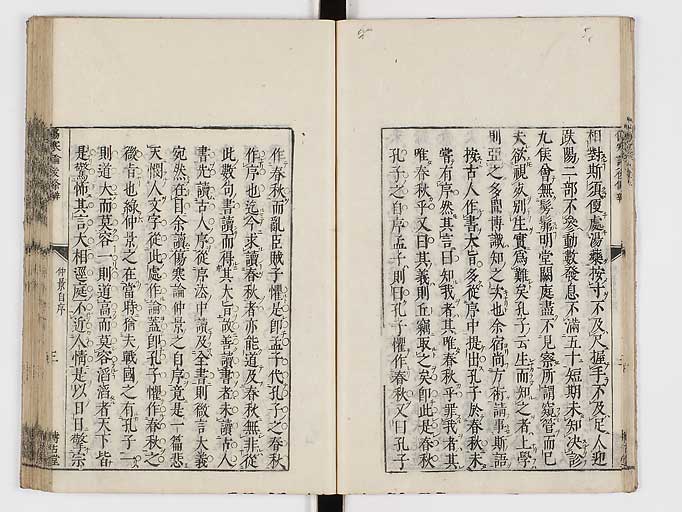 相對斯須便處湯藥按寸不及尺握手不及足人迎
趺陽三部不參動數發息不滿五十短期未知決診
九侯曾無髣髴明堂闕庭盡不見察所謂窺管而已
夫欲視死別生實爲難矣孔子云生而知之者上學
則亞之多聞博識知之次也余宿尚方術請事斯語
按古人作書大旨多從序中提出孔子於春秋未
嘗有序然其言曰知我者其唯春秋乎罪我者其
唯春秋乎又曰其義則丘竊取之矣即此是春秋
孔子之自序孟子則曰孔子懼作春秋又曰孔子
作春秋而亂臣賊子懼是即孟子代孔子之春秋
作序也迄今未讀春秋者亦能道及春秋無非從
此數句書讀而得其大旨故善讀書者未讀古人
書先讀古人序從序法中讀及全書則微言大義
宛然在目余讀傷寒論仲景之自序竟是一篇悲
天憫人文字從此處作論蓋即孔子懼作春秋之
微旨也緣仲景之在當時猶夫戰國之有孔子一
則道大而莫容一則道高而莫容滔滔者天下皆
是驚怖其言大相逕庭不近人情是以目擊宗
仲景自序
三